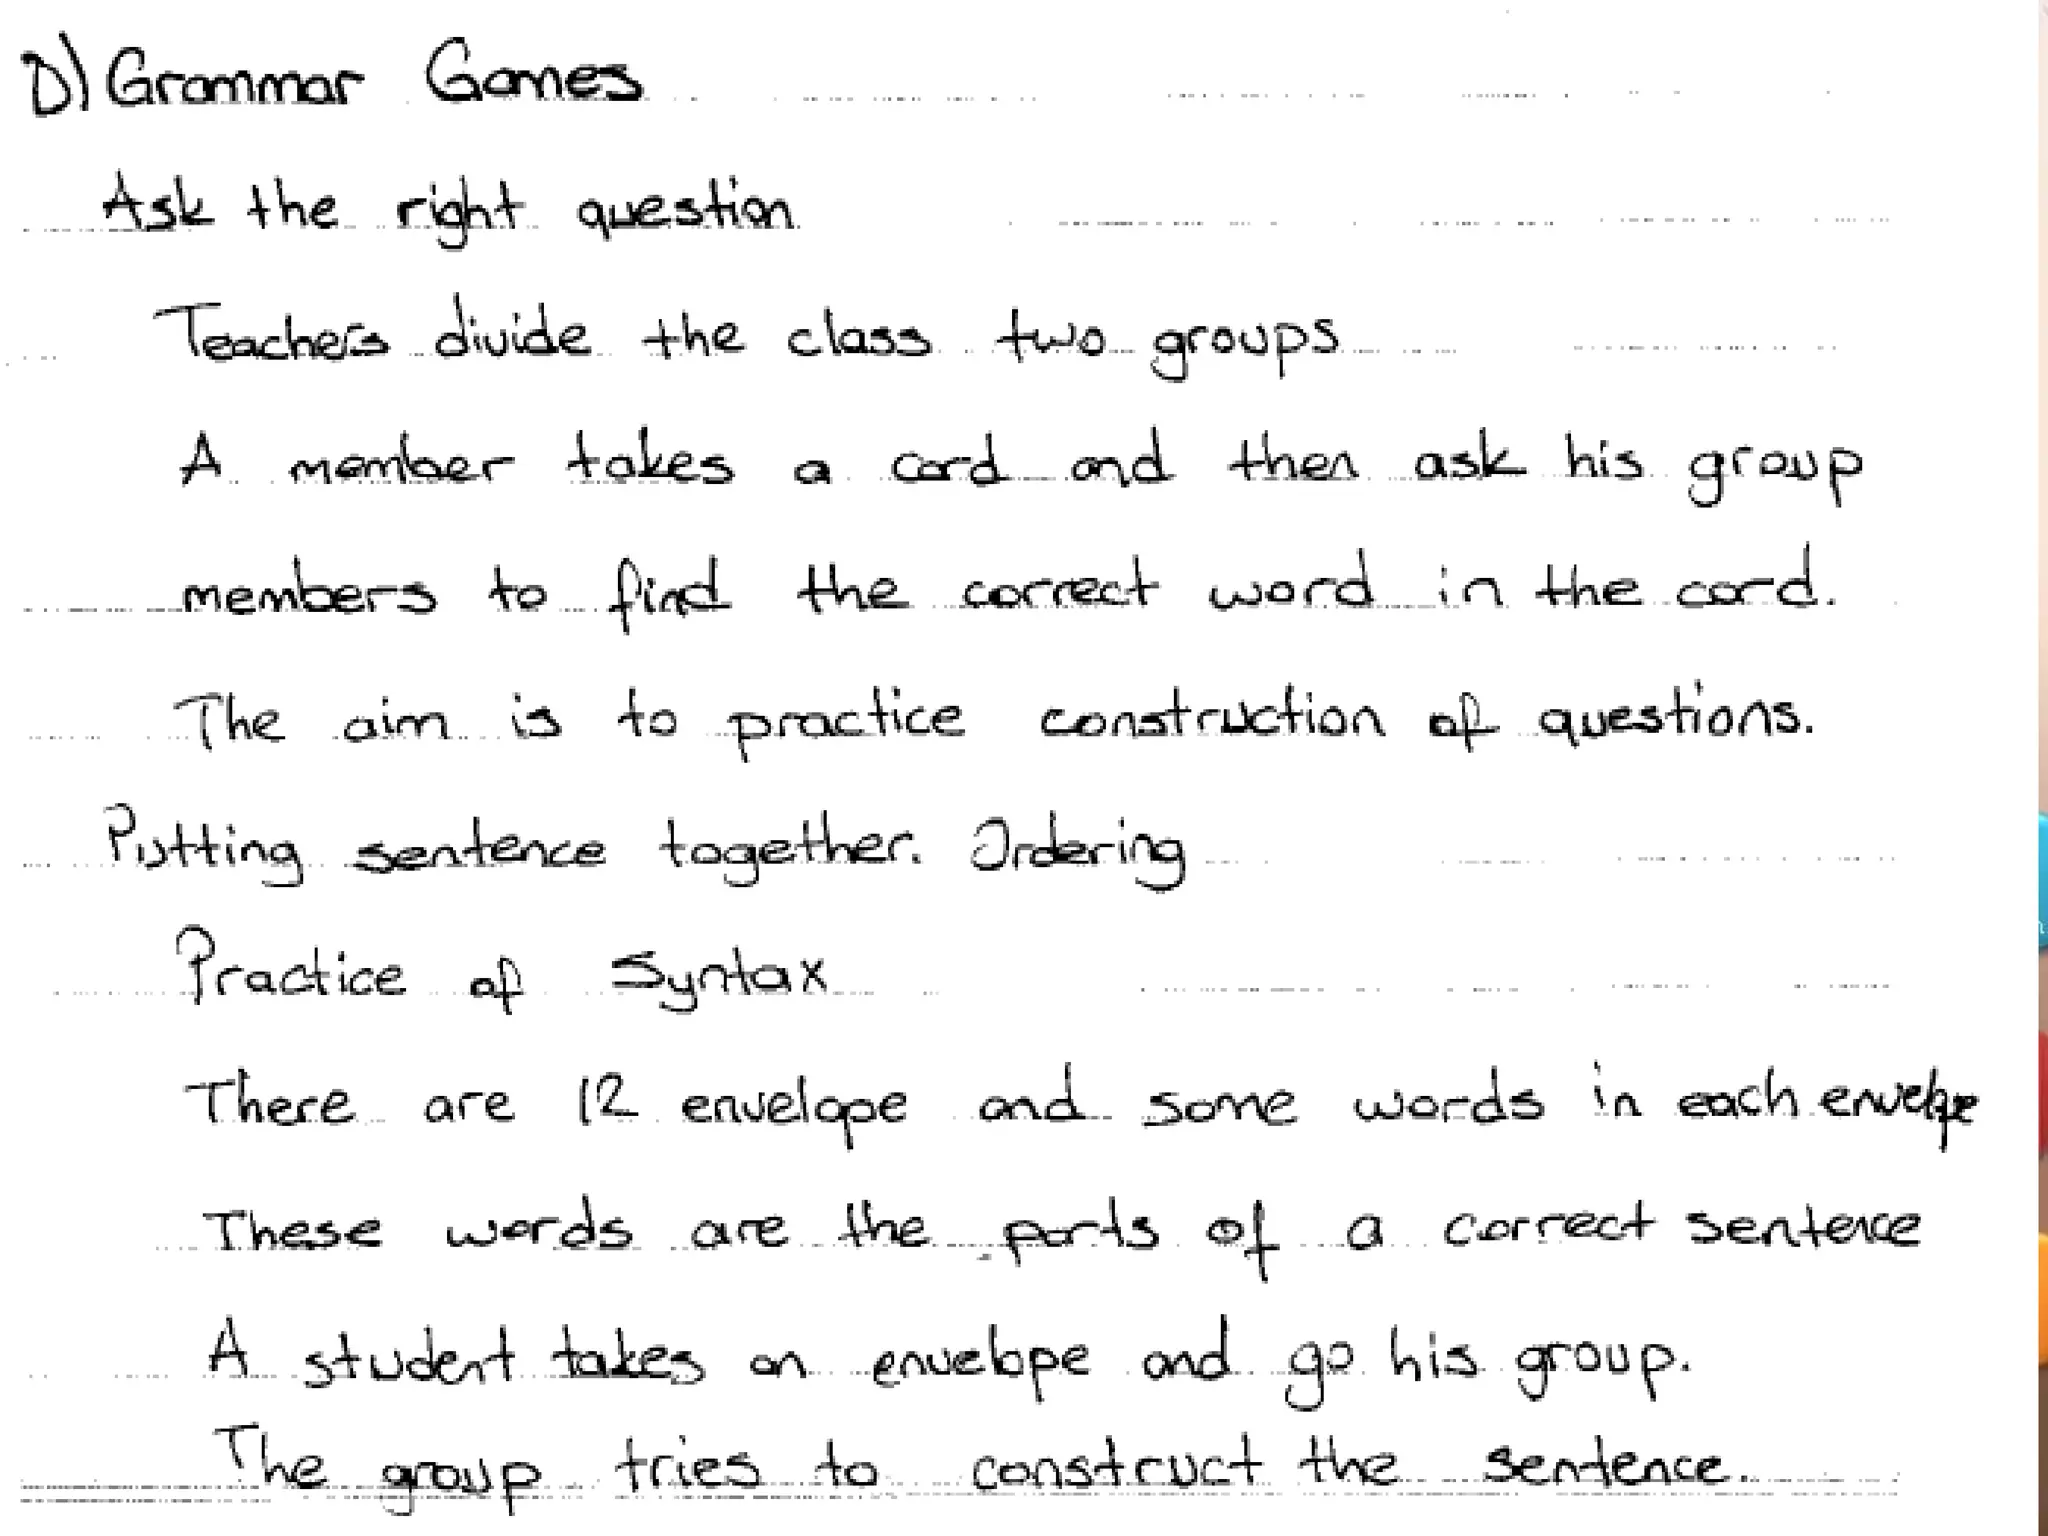 D) Grammar Games
Ask the right question
Teachers divide the class two groups
A member takes a card and then ask his group
members to find the correct word in the card.
The aim is to practice construction of questions.
Putting sentence together. Ordering
Practice of Syntax
There are 12 envelope and some words in each envelope
These words are the parts of a correct sentence
A student takes an envelope and go his group.
The group tries to construct the sentence.